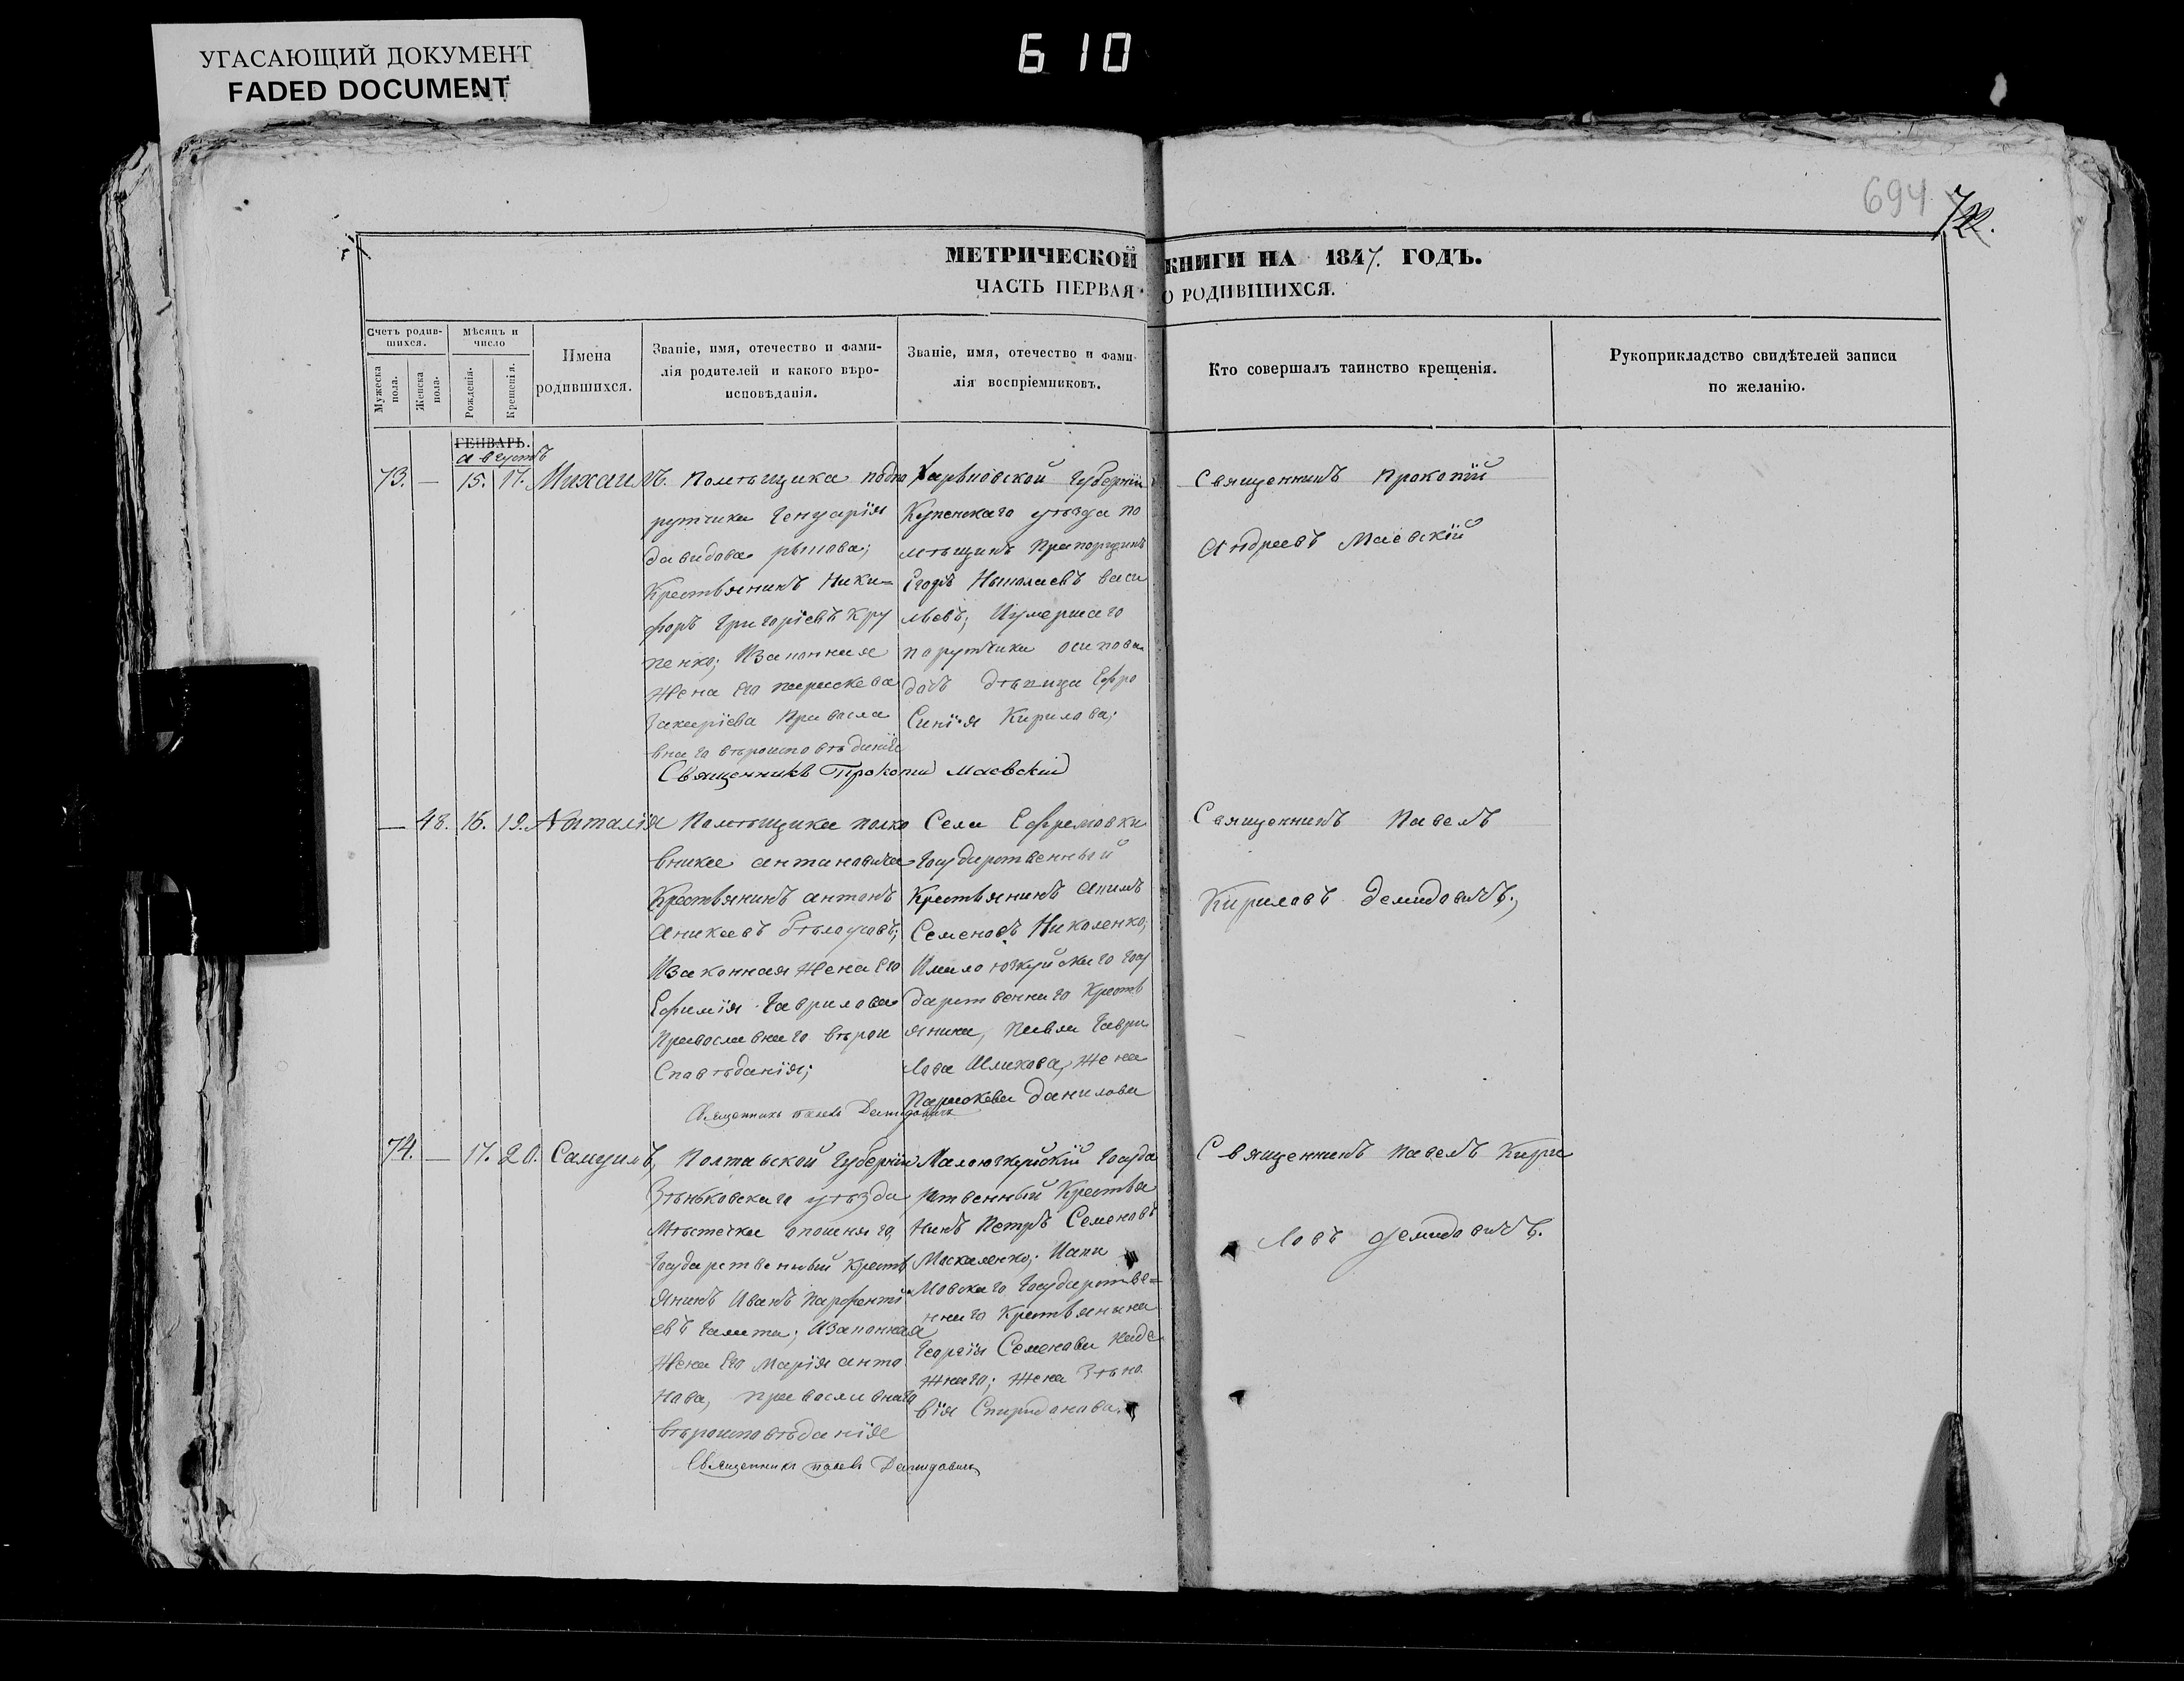 УГАСАЮЩИЙ ДОКУМЕНТ
FADED DOCUMENT
610
694
722.
МЕТРИЧЕСКОЙ КНИГИ НА 1847. ГОДЪ.
ЧАСТЬ ПЕРВАЯ О РОДИВШИХСЯ.
Счетъ родив-
шихся.
Мужеска
пола.
Женска
пола.
Мѣсяцъ и
число
Рожденія.
Крещенія.
Имена
родившихся.
Званіе, имя, отечество и фами-
лія родителей и какого вѣро-
исповѣданія.
Званіе, имя, отечество и фами-
лія воспріемниковъ.
Кто совершалъ таинство крещенія.
Рукоприкладство свидѣтелей записи
по желанію.
ГЕНВАРЬ.
августъ
73. — 15. 17. Михаилъ.
Помѣщика подпо
рутчика Генуарія
давидова
Крестьянинъ Ники=
форъ Григоріевъ Кру
пенко; Изаконная
жена Его параскева
Захаріева Правосла
внаго вѣроисповѣданія
Священникъ Прокопій Маевскій
Харьковской Губерніи
Купенскаго уѣзда по
мѣщикъ Прапорщикъ
Егоръ Николаевъ Васи
льевъ; Иумершаго
порутчика осипова
дѣвица Ефро
синія Кирилова;
Священникъ Прокопій
Андреевъ Маевскій
— 48. 16. 19. Наталія
Помѣщика полко
вника антановича
Крестьянинъ антонъ
Аникеевъ бѣлоусовъ;
Изаконная жена Его
Ефимія Гаврилова
Православнаго вѣрои
сповѣданія;
Священникъ павелъ Демидовичъ
Села Ефремовки
Государственный
Крестьянинъ Акимъ
Семеновъ Николенко;
Государственнаго Крестьянина, Павла Гаври
лова жена
Параскева данилова
Священникъ Павелъ
Кириловъ Демидовичъ.,
74. — 17. 20. Самуилъ,
Полтавской Губерніи
Зѣньковскаго уѣзда
Мѣстечка опошняго,
Государственный Кресть
янинъ Иванъ Парфенті
евъ Изаконная
жена Его Марія анто
нова, православнаго
вѣроисповѣданія
Священникъ павелъ Демидовичъ
Госуда
рственный Крестья
нинъ Петръ Семеновъ
Маскаленко;
Государстве=
ннаго Крестьянина
Георгія Семенова
жена Зѣно
вія Спиридонова.
Священникъ павелъ Кири
ловъ Демидовичъ.